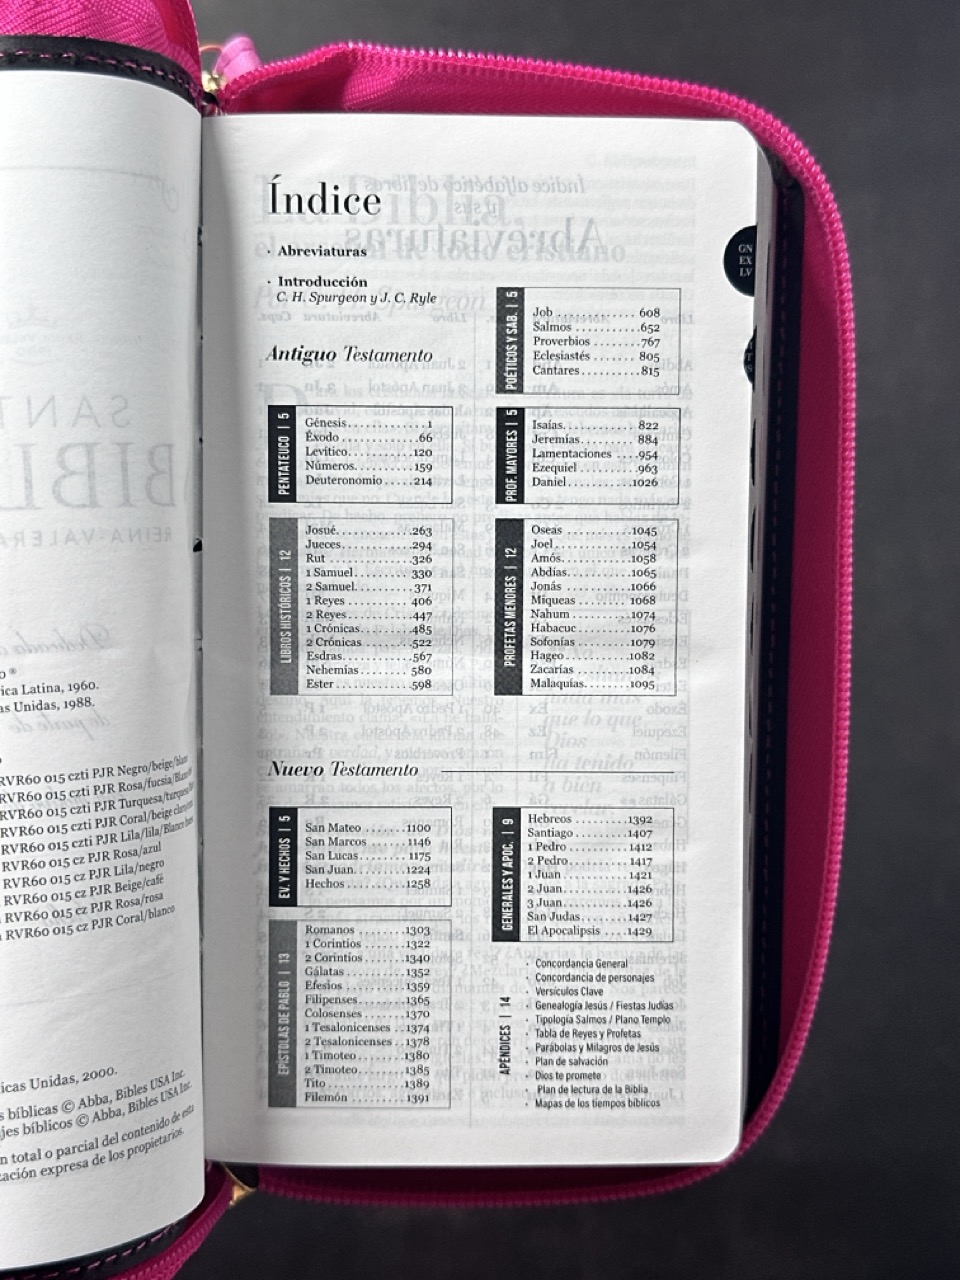 o ®
ica Latina, 1960.
as Unidas, 1988.
RVR60 015 czti PJR Negro/beige/blan
RVR60 015 czti PJR Rosa/fucsia/Blanc
RVR60 015 czti PJR Turquesa/turquesa
RVR60 015 czti PJR Coral/beige
RVR60 015 czti PJR Lila/lila/Blanco
RVR60 015 cz PJR Rosa/azul
RVR60 015 cz PJR Lila/negro
RVR60 015 cz PJR Beige/café
RVR60 015 cz PJR Rosa/rosa
RVR60 015 cz PJR Coral/blanco
icas Unidas, 2000.
s bíblicas © Abba, Bibles USA Inc.
jes bíblicos © Abba, Bibles USA Inc.
n total o parcial del contenido de esta
zación expresa de los propietarios.
Índice
· Abreviaturas
· Introducción
C. H. Spurgeon y J. C. Ryle
Antiguo Testamento
PENTATEUCO | 5
Génesis..............1
Éxodo..............66
Levítico..........120
Números.........159
Deuteronomio.....214
LIBROS HISTÓRICOS | 12
Josué..............263
Jueces.............294
Rut................326
1 Samuel.........330
2 Samuel.........371
1 Reyes...........406
2 Reyes...........447
1 Crónicas.......485
2 Crónicas.......522
Esdras............567
Nehemías........580
Ester..............598
POÉTICOS Y SAB. | 5
Job...............608
Salmos...........652
Proverbios........767
Eclesiastés.......805
Cantares.........815
PROF. MAYORES | 5
Isaías.............822
Jeremías..........884
Lamentaciones....954
Ezequiel.........963
Daniel...........1026
PROFETAS MENORES | 12
Oseas............1045
Joel..............1054
Amós............1058
Abdías...........1065
Jonás............1066
Miqueas.........1068
Nahum..........1074
Habacuc.........1076
Sofonías.........1079
Hageo...........1082
Zacarías.........1084
Malaquías........1095
Nuevo Testamento
EV. Y HECHOS | 5
San Mateo.......1100
San Marcos......1146
San Lucas........1175
San Juan.........1224
Hechos..........1258
EPÍSTOLAS DE PABLO | 13
Romanos........1303
1 Corintios.......1322
2 Corintios.......1340
Gálatas..........1352
Efesios...........1359
Filipenses........1365
Colosenses.......1370
1 Tesalonicenses..1374
2 Tesalonicenses..1378
1 Timoteo........1380
2 Timoteo........1385
Tito..............1389
Filemón..........1391
GENERALES Y APOC. | 9
Hebreos.........1392
Santiago.........1407
1 Pedro..........1412
2 Pedro..........1417
1 Juan...........1421
2 Juan...........1426
3 Juan...........1426
San Judas........1427
El Apocalipsis....1429
APÉNDICES | 14
· Concordancia General
· Concordancia de personajes
· Versículos Clave
· Genealogía Jesús / Fiestas Judías
· Tipología Salmos / Plano Templo
· Tabla de Reyes y Profetas
· Parábolas y Milagros de Jesús
· Plan de salvación
· Dios te promete
· Plan de lectura de la Biblia
· Mapas de los tiempos bíblicos
GN
EX
LV